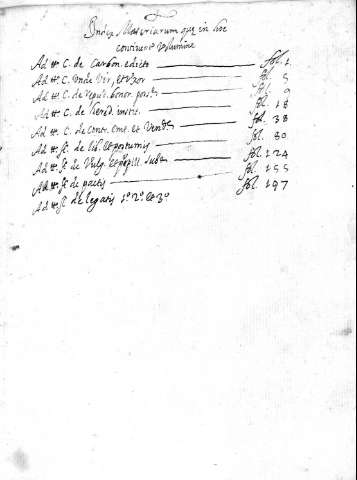 Index Materiarum quæ in hoc
continentur Volumine
Ad tt. C. de Carbon. edicto fol. 1
Ad tt. C. Unde Vir, et Uxor fol. 5
Ad tt. C. de repud. bonor. poss. fol. 9
Ad tt. C. de hered. instit. fol. 18
Ad tt. C. de Contr. Emt. et Vend. fol. 38
Ad tt. ff. de lib. Et postumis fol. 80
Ad tt. ff. de Vulg. Et pupill. Subst. fol. 124
Ad tt. ff. de pactis fol. 155
Ad tt. ff. de legatis 1º. 2º. Et 3º. fol. 197